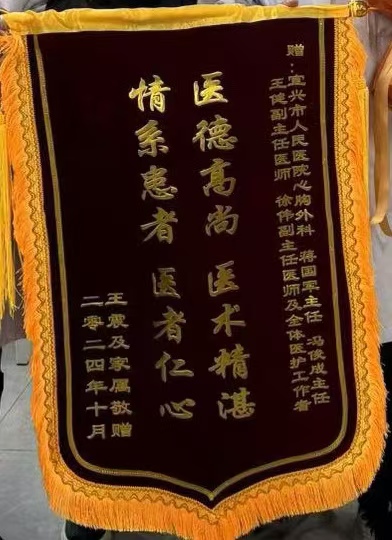 赠：宜兴市人民医院心胸外科 蒋国军主任 冯俊成主任
王健副主任医师 徐伟副主任医师及全体医护工作者
医德高尚 医术精湛
情系患者 医者仁心
王震及家属敬赠
二零二四年十月